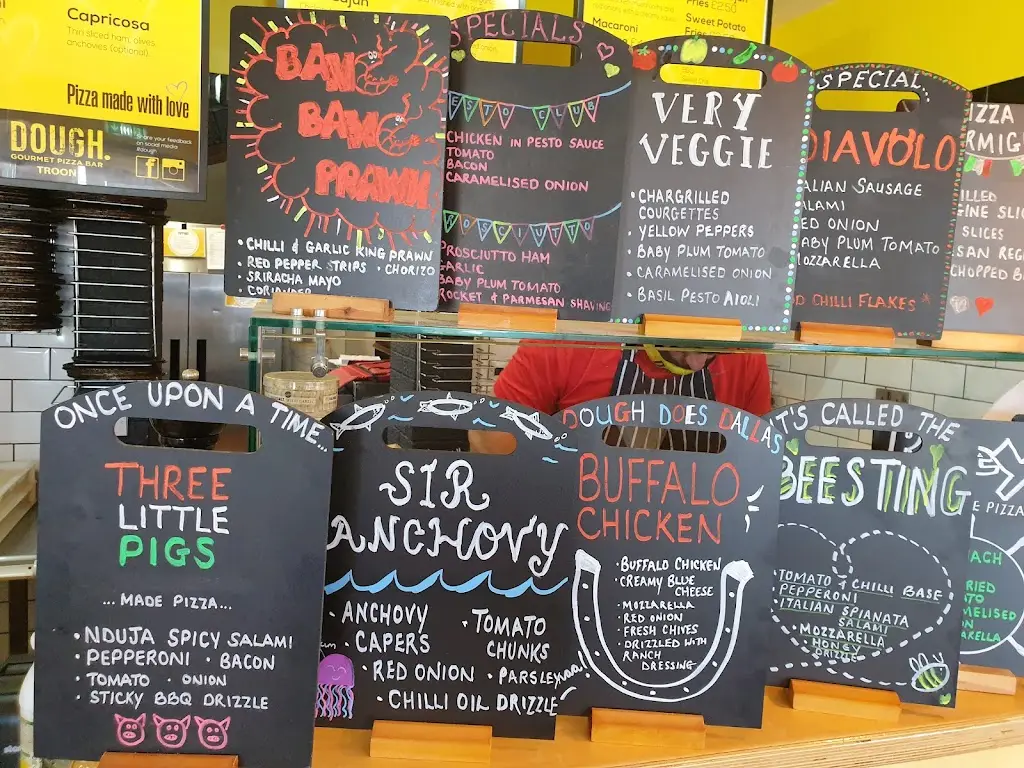 Capricosa
Thin sliced ham, olives,
anchovies (optional).
Pizza made with love
DOUGH.
GOURMET PIZZA BAR
TROON
Share your feedback
on social media
#dough
Macaroni
Fries £2.50
Sweet Potato
Fries
BANG
BANG
PRAWN
• CHILLI & GARLIC KING PRAWN
• RED PEPPER STRIPS • CHORIZO
• SRIRACHA MAYO
• CORIANDER
SPECIALS
ESTO CLUB
CHICKEN IN PESTO SAUCE
TOMATO
BACON
CARAMELISED ONION
ROSCIUTTO
PROSCIUTTO HAM
GARLIC
BABY PLUM TOMATO
ROCKET & PARMESAN SHAVING
VERY
VEGGIE
• CHARGRILLED
COURGETTES
• YELLOW PEPPERS
• BABY PLUM TOMATO
• CARAMELISED ONION
• BASIL PESTO AIOLI
SPECIAL...
DIAVOLO
ALIAN SAUSAGE
ALAMI
ED ONION
BABY PLUM TOMATO
MOZZARELLA
D CHILLI FLAKES
IZZA
RMIG
ILLED
INE SLIC
SLICES
SAN REG
CHOPPED B
ONCE UPON A TIME...
THREE
LITTLE
PIGS
...MADE PIZZA...
• NDUJA SPICY SALAMI
• PEPPERONI • BACON
• TOMATO • ONION
• STICKY BBQ DRIZZLE
SIR
ANCHOVY
• ANCHOVY
• CAPERS
• TOMATO
CHUNKS
• RED ONION • PARSLEY
• CHILLI OIL DRIZZLE
DOUGH DOES DALLAS
BUFFALO
CHICKEN
• BUFFALO CHICKEN
• CREAMY BLUE
CHEESE
• MOZZARELLA
• RED ONION
• FRESH CHIVES
• DRIZZLED WITH
RANCH
DRESSING
IT'S CALLED THE
BEESTING
TOMATO & CHILLI BASE
PEPPERONI
ITALIAN SPIANATA
SALAMI
• MOZZARELLA
HONEY
DRIZZLE
E PIZZA
ACH
RIED
ATO
AMELISED
ION
ARELLA